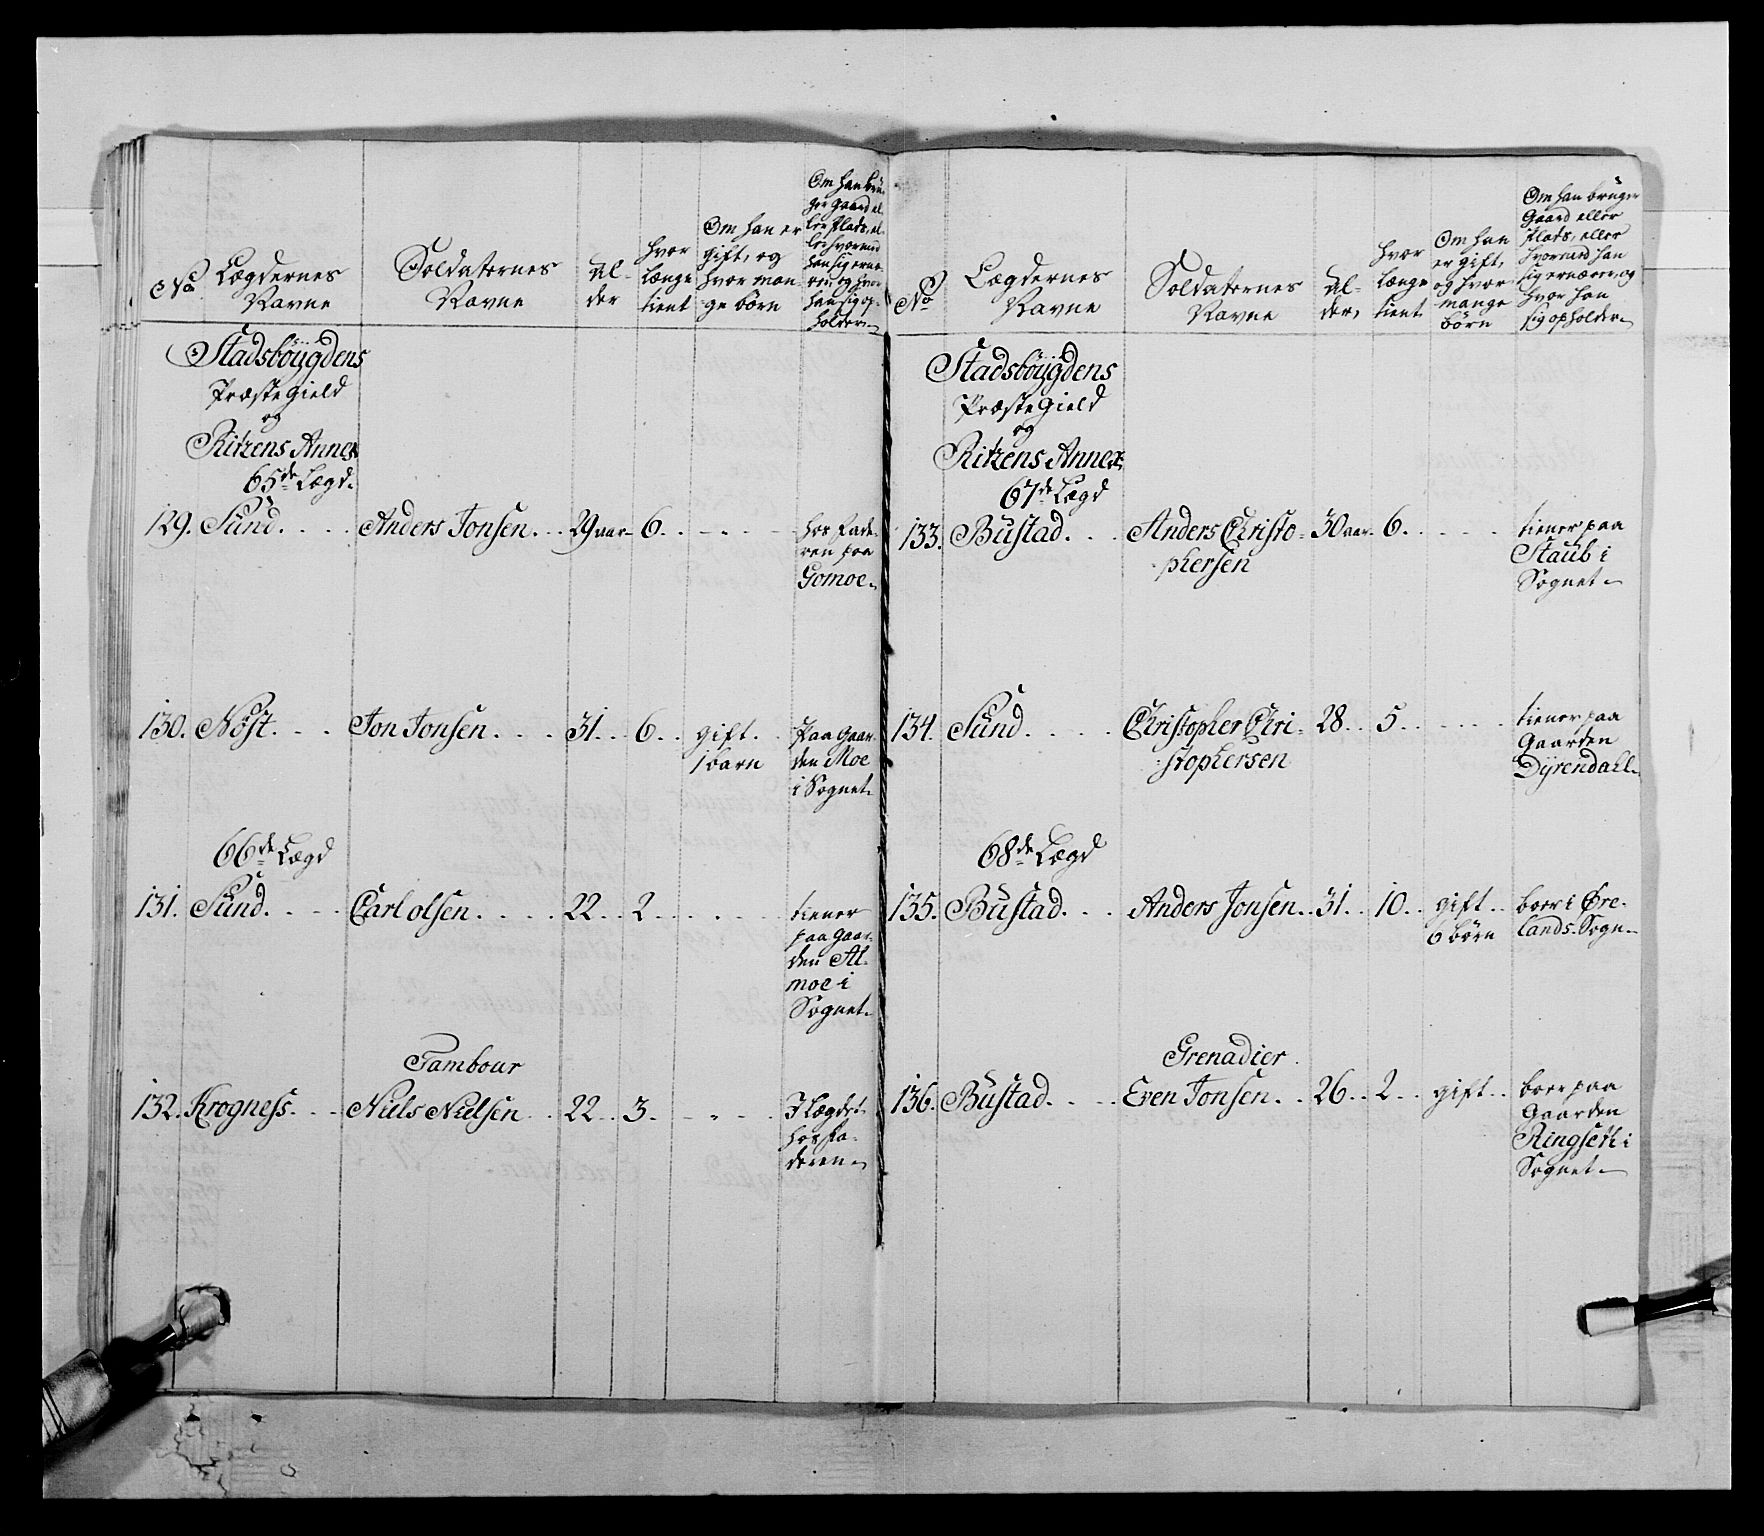 No
Lægdernes
Navne
Soldaternes
Navne
Al-
der
hvor
længe
tient
Om han er
gift, og
hvor man-
ge börn
Om han bru-
ger gaard el-
ler Plads, el-
ler hvormed
han sig ernæ-
rer, og hvor
han sig op-
holder
Stadsböijgdens
Præstegield
og
Ritzens Annex
65de Lægd.
129. Sund. Anders Jonsen. 29 aar 6.
hos Fade-
ren paa
Gomoe.
130. Nöst. Jon Jonsen. 31. 6. gift.
1 barn
Paa Gaar-
den Moe
i Sognet.
66de Lægd
131. Sund. Carl olsen. 22. 2.
tiener
paa Gaar-
den Al-
moe i
Sognet.
Tambour
132. Krogness. Niels Nielsen 22. 3.
I Lægdet
hos Fa-
deren
No
Lægdernes
Navne
Soldaternes
Navne
Al-
der,
hvor
længe
tient
Om han
er gift,
og hvor
mange
börn
Om han bruger
Gaard eller
Plads, eller
hvormed han
sig ernærer, og
hvor han
sig opholder
Stadsböijgdens
Præstegield
og
Ritzens Annex,
67de Lægd
133. Bustad. Anders Christo- 30 aar. 6.
phersen
tiener paa
Staub i
Sognet
134. Sund. Christopher Chri- 28. 5.
stophersen
tiener paa
Gaarden
Dyrendahl.
68de Lægd
135. Bustad. Anders Jonsen. 31. 10. gift.
6 börn
boer i Øre-
lands-Sogn
Grenadier.
136. Bustad. Even Jonsen. 26. 2. gift.
boer paa
Gaarden
Ringseth i
Sognet